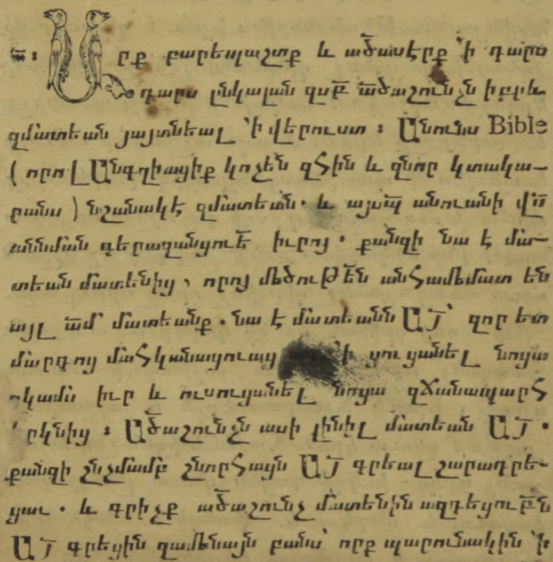 ՟ա։ Արք բարեպաշտք և ած՟ասէրք ՚ի դարս
դարս ընկալան զսբ՟ ած՟աշունչն իբրև
զմատեան յայտնեալ ՚ի վերուստ ։ Անունս Bible
( որով Անգղիացիք կոչեն զՀին և զնոր կտակա-
րանս ) նշանակէ զմատեան. և այսպ՟ անուանի վս՟
աննման գերազանցուե՟ իւրոյ . քանզի նա է մա-
տեան մատենից , որոյ մեծութե՟ն անհամեմատ են
այլ ամ՟ մատեանք . նա է մատեանն ԱՅ՟ ՝ զոր ետ
մարդոյ մահկանացուաց ՚ի ցուցանել նոցա
զկամս իւր և ուսուցանել նոցա զճանապարհ
երկնից ։ Ած՟աշունչն ասի լինիլ մատեան ԱՅ՟ .
քանզի շնչմամբ շնորհացն ԱՅ՟ գրեալ շարադրե-
ցաւ . և գրիչք ած՟աշունչ մատենին ազդեցուբ՟ն
ԱՅ՟ գրեցին զամենայն բանս՝ որք պարունակին ՚ի